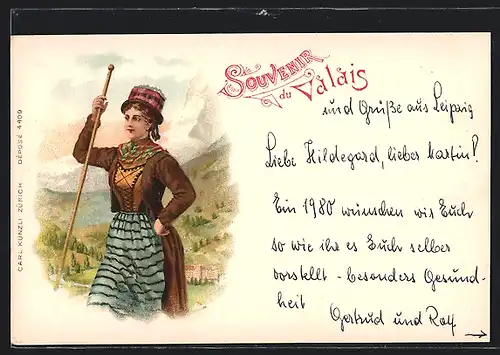 Souvenir
du Valais
und Grüße aus Leipzig
Liebe Hildegard, lieber Martin!
Ein 1980 wünschen wir Euch
so wie ihr es Euch selber
vorstellt - besonders Gesund-
heit Gertrud und Rolf
→
CARL KÜNZLI ZÜRICH DÉPOSÉ 4409